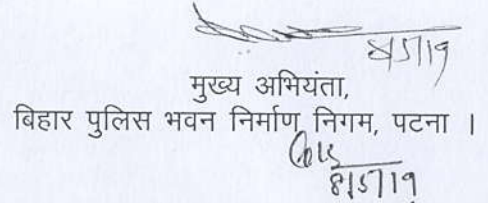 8/5/19
मुख्य अभियंता,
बिहार पुलिस भवन निर्माण निगम, पटना ।
8/5/19